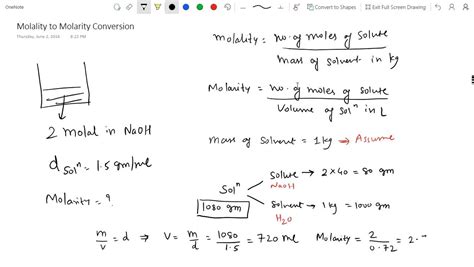 OneNote
Convert to Shapes
Exit Full Screen Drawing
Molality to Molarity Conversion
Thursday, June 2, 2016
8:22 PM
Molality = no. of moles of solute
mass of solvent in kg
Molarity = no. of moles of solute
Volume of solⁿ in L
2 molal in NaOH
d solⁿ = 1.5 gm/ml
Molarity = ?
mass of solvent = 1 kg → Assume
Solⁿ
1080 gm
Solute → 2×40 = 80 gm
NaOH
Solvent → 1 kg = 1000 gm
H₂O
m/v = d ⇒ V = m/d = 1080/1.5 = 720 ml
Molarity = 2/0.72 = 2.